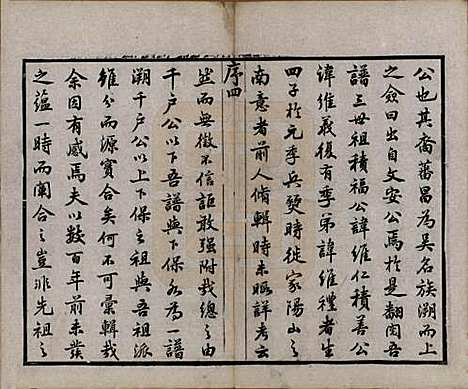 公也其裔蕃昌為吳名族溯而上
之僉曰出自文安公焉於是翻閱吾
譜三世祖積福公諱維仁積善公
諱維義復有季弟諱維禮者生
四子於元季兵燹時徙家陽山之
南意者前人脩輯時未暇詳考云
序四
然而無徵不信詎敢強附哉總之由
千戶公以下吾譜與下保各為一譜
溯千戶公以上下保之祖與吾祖派
雖分而源實合矣何不可彙輯哉
余因有感焉夫以數百年前未業
之蘊一時而闔合之豈非先祖之